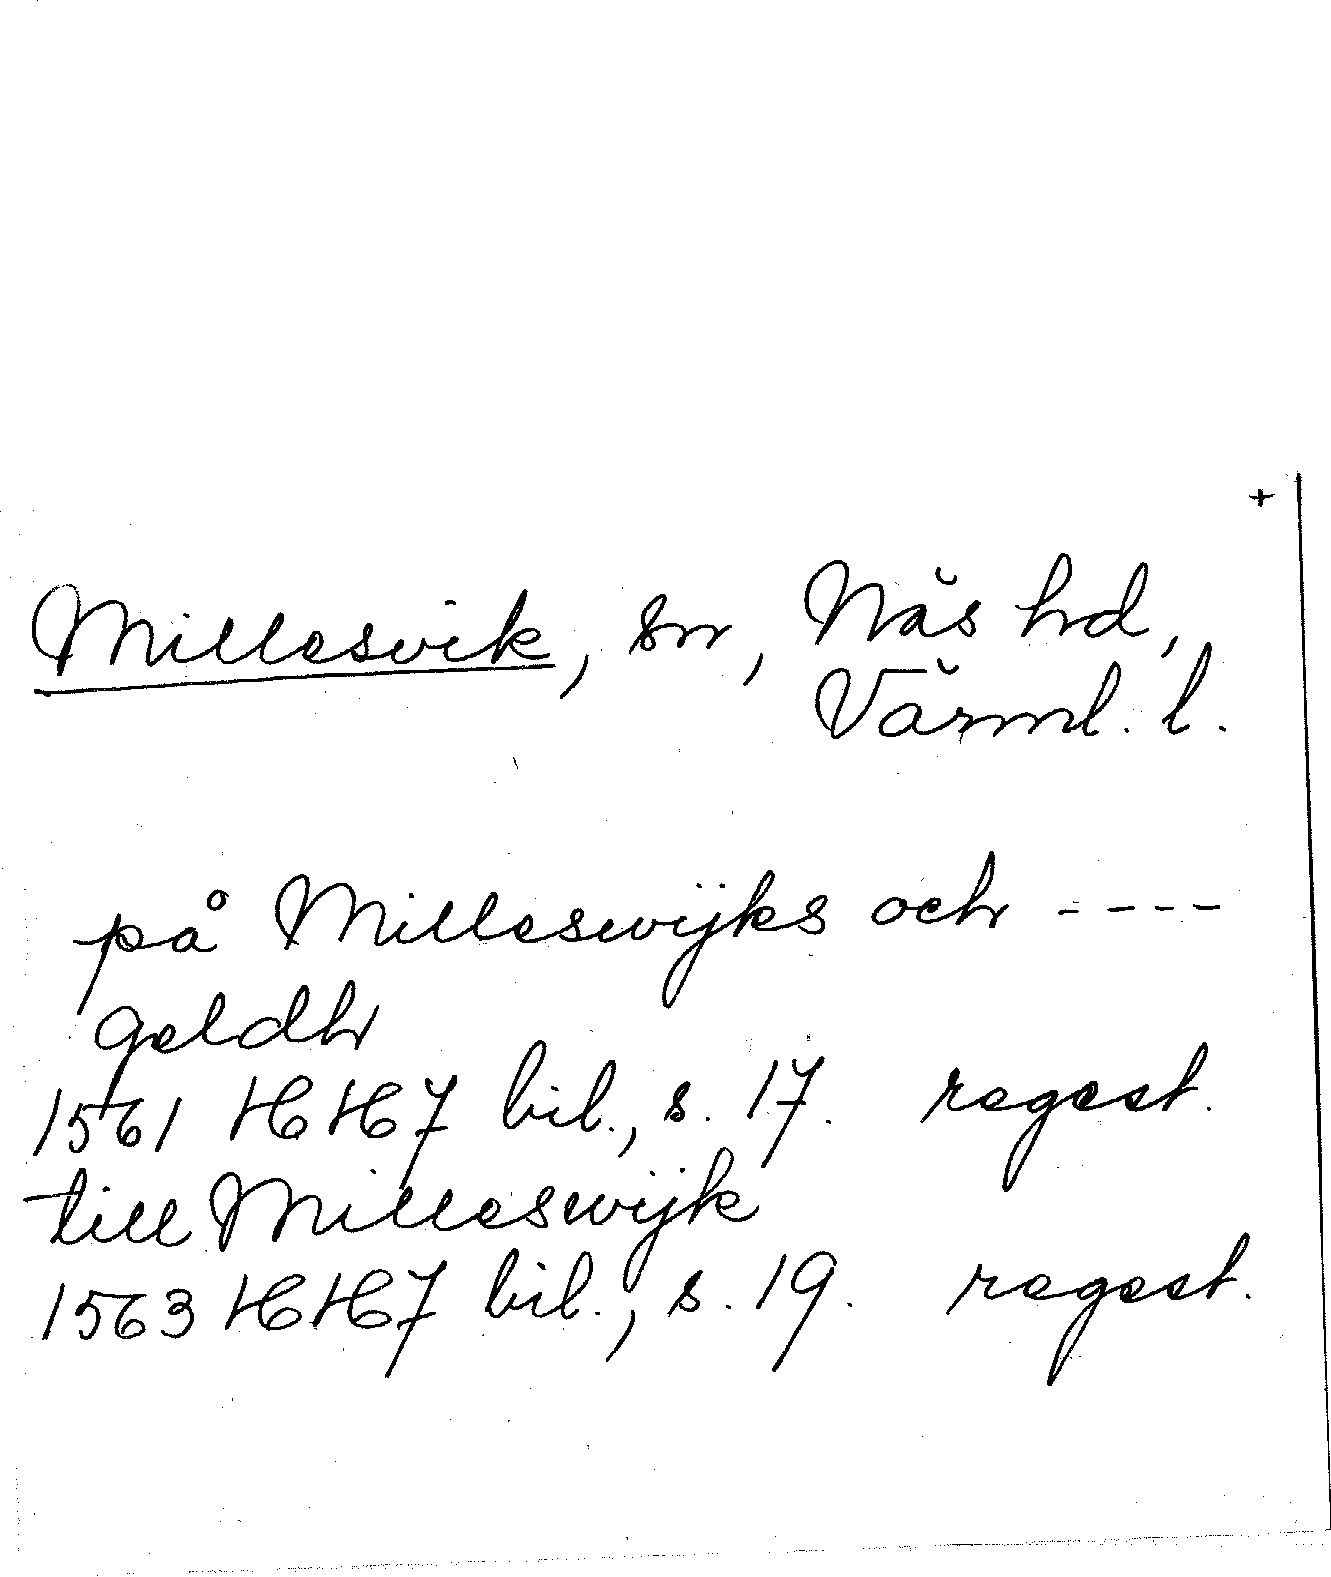 +
Millesvik, sn, Näs hd,
Värml. l.
på Milleswijks och ----
geldh
1561 HH7 bil., s. 17. regest.
till Milleswijk
1563 HH7 bil., s. 19. regest.